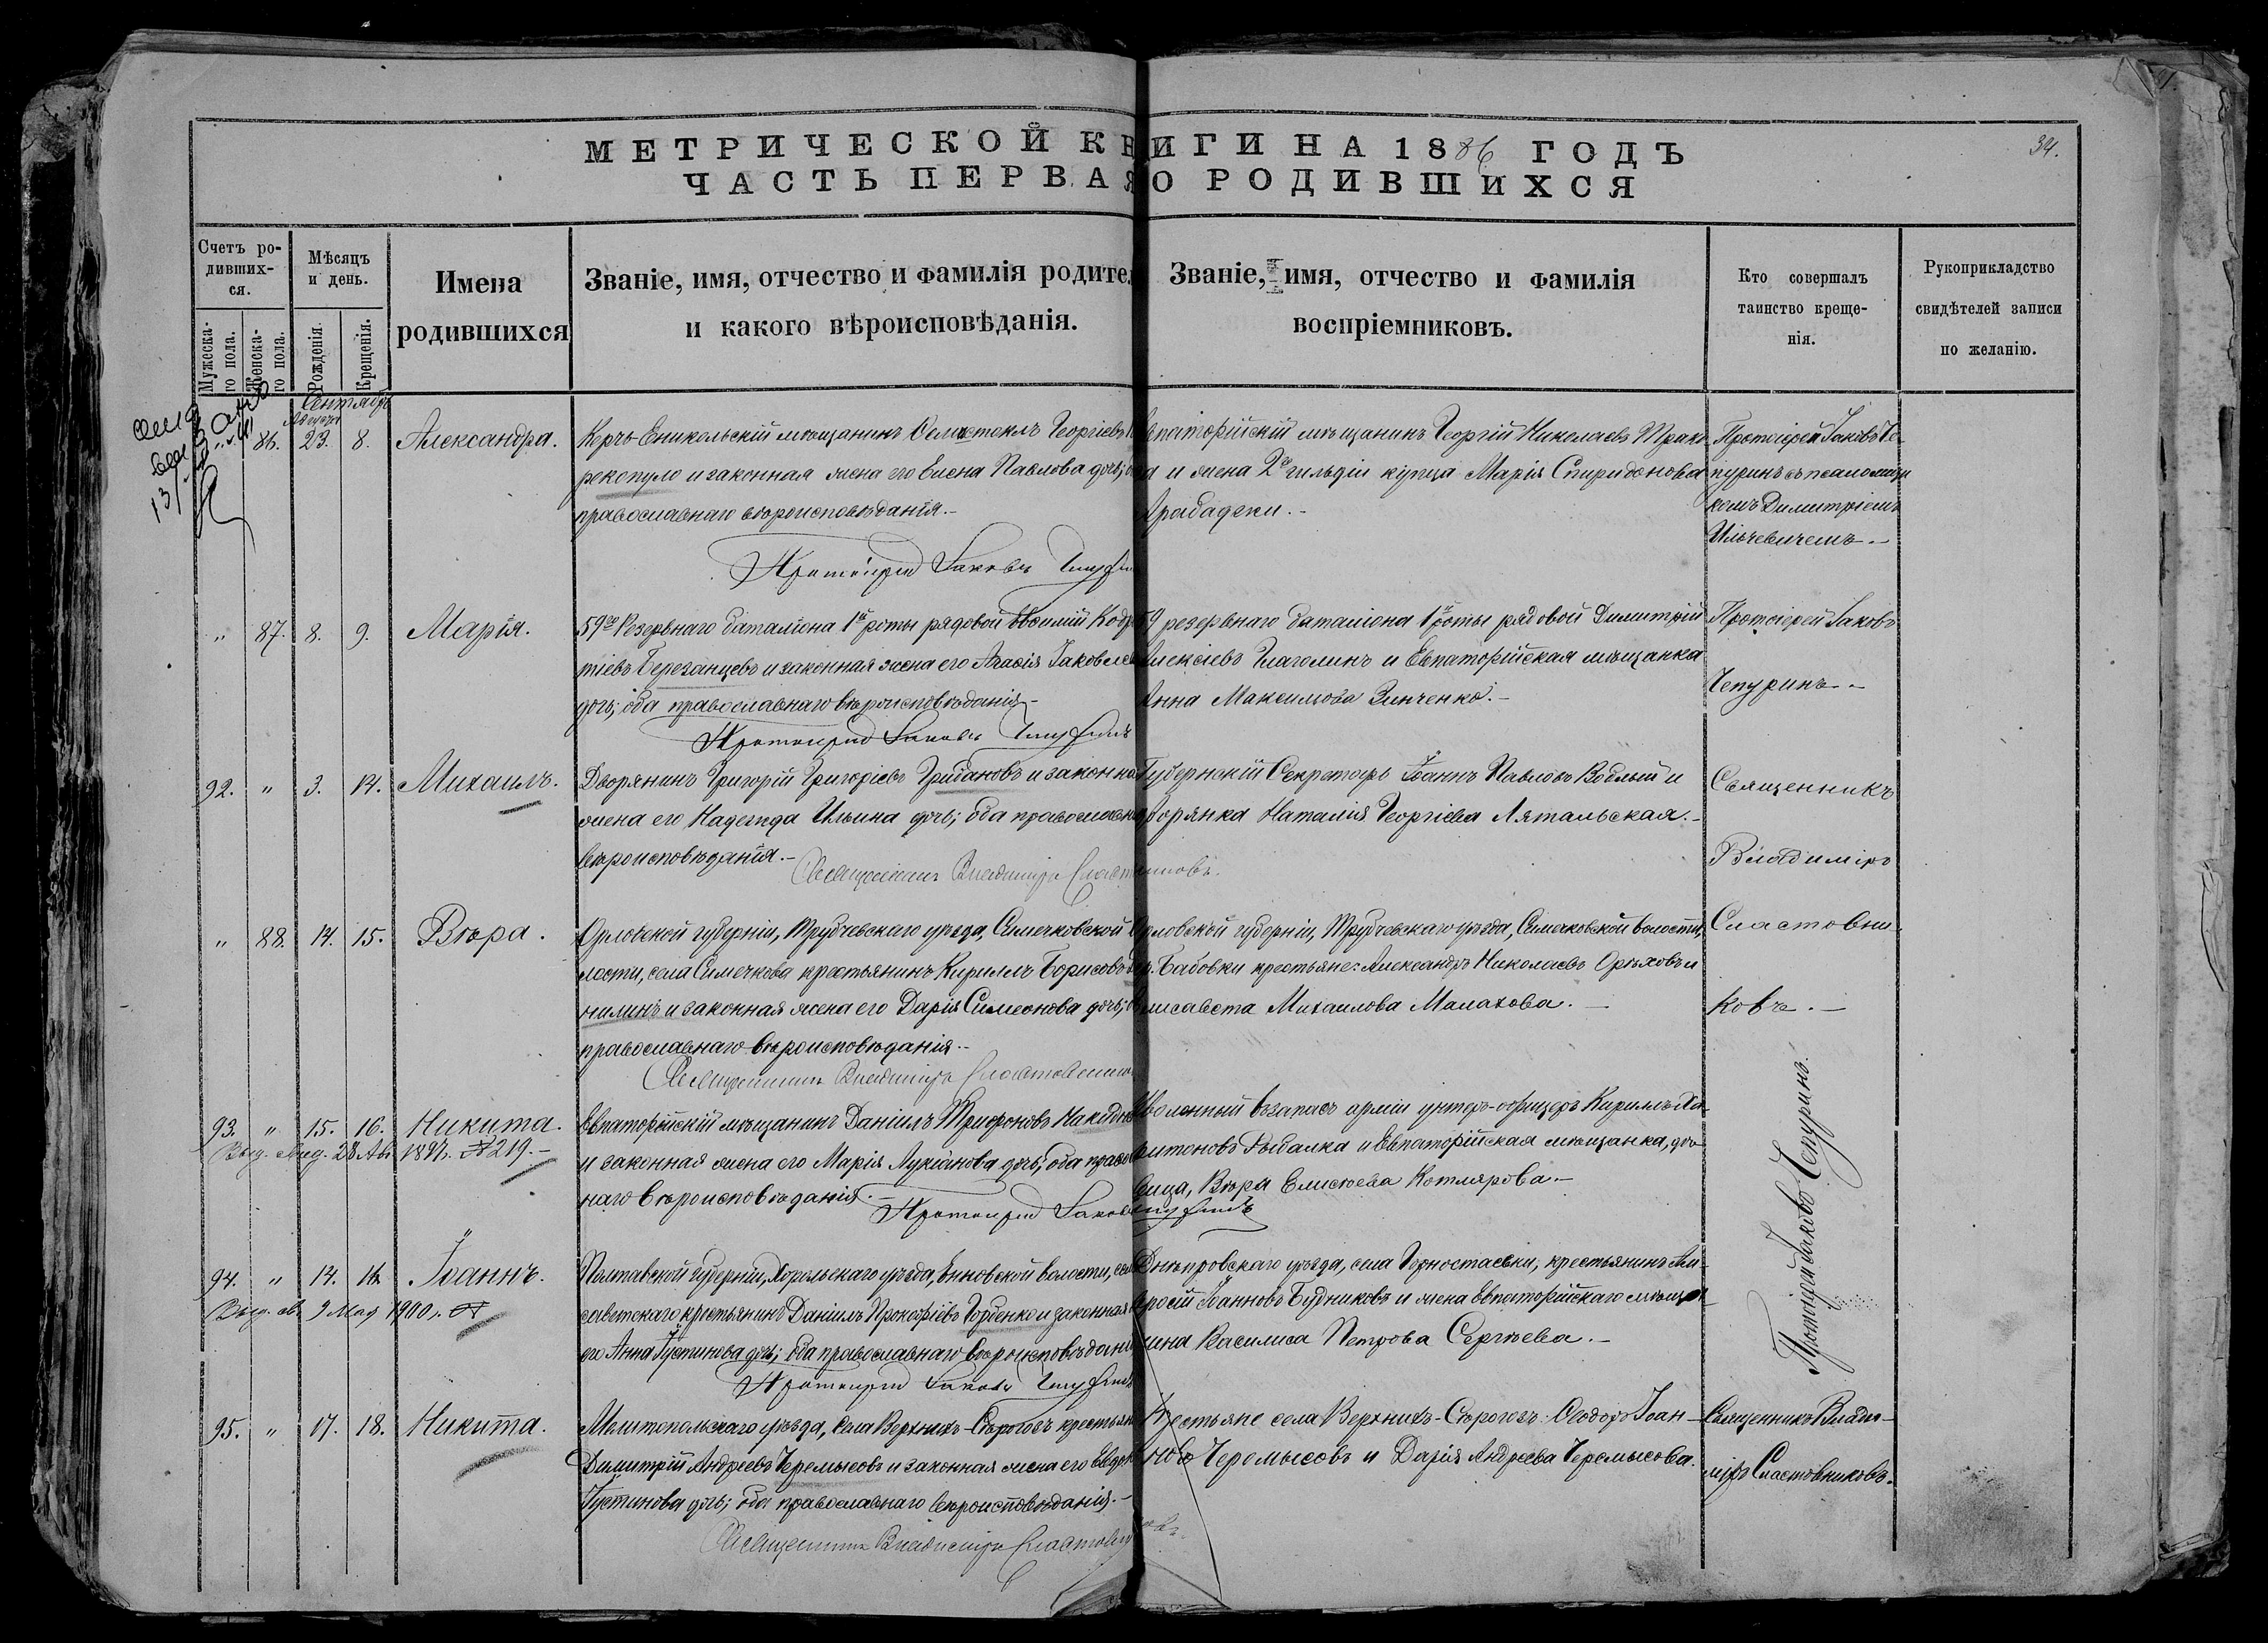 МЕТРИЧЕСКОЙ КНИГИ НА 1886 ГОДЪ
34.
ЧАСТЬ ПЕРВАЯ О РОДИВШИХСЯ
Счетъ ро-
дивших-
ся.
Мужеска-
го пола.
Женска-
го пола.
Мѣсяцъ
и день.
Рожденія.
Крещенія.
Имена
родившихся
Званіе, имя, отчество и фамилія родител
и какого вѣроисповѣданія.
Званіе, имя, отчество и фамилія
воспріемниковъ.
Кто совершалъ
таинство креще-
нія.
Рукоприкладство
свидѣтелей записи
по желанію.
Сентябрь
Августа
86. 23. 8. Александра.
Керчь Еникольскій мѣщанинъ Ѳемистоклъ Георгіевъ
рокопуло и законная жена его Елена Павлова дочь;
православнаго вѣроисповѣданія.-
Протоіерей Іаковъ
Евпаторійскій мѣщанинъ Георгій Николаевъ
и жена 2й гильдіи купца Марія Спиридонова
Арабаджи.-
Протоіерей Іаковъ Че-
пуринъ съ псаломщи
комъ Димитріемъ
Ильчевичемъ.-
" 87. 8. 9. Марія.
59го Резервнаго баталіона 1й роты рядовой
тіевъ Березанцевъ и законная жена его Агафія Іаковлев
дочь; оба православнаго вѣроисповѣданія-
Протоіерей Іаковъ Чепуринъ
59 резервнаго баталіона 1й роты рядовой Димитрій
Алексіевъ Глаголинъ и Евпаторійская мѣщанка
Анна Максимова Зинченко.-
Протоіерей Іаковъ
Чепуринъ.-
92. " 3. 14. Михаилъ.
Дворянинъ Григорій Григоріевъ Гридановъ и законна
жена его Надежда Ильина дочь; оба православна
вѣроисповѣданія.-
Священникъ Владиміръ Сластниковъ.
Губернскій Секретарь Іоаннъ Павловъ и
Дворянка Наталія Георгіева Лятальская.-
Священникъ
Владиміръ
" 88. 14. 15. Вѣра.
Орловской губерніи, Трубчевскаго уѣзда, Семечковской
лости, села Семечкова крестьянинъ Кириллъ Борисовъ
нилинъ и законная жена его Дарія Симеонова дочь;
православнаго вѣроисповѣданія.-
Священникъ Владиміръ Сластовнико
Орловской губерніи, Трубчевскаго уѣзда, Семечковской волости,
дер. Бабовки крестьяне: Александръ Николаевъ Орѣховъ и
Елисавета Михаилова Малахова.-
Сластовни
ковъ.-
93. " 15. 16. Никита.
1897г. №219.-
Евпаторійскій мѣщанинъ Даніилъ Трифоновъ
и законная жена его Марія Лукіанова дочь; оба право
наго вѣроисповѣданія.-
Протоіерей Іаковъ Чепуринъ
Уволенный въ запасъ арміи унтеръ-офицеръ Кириллъ Ха-
ритоновъ Рыбалка и Евпаторійская мѣщанка, дѣ-
вица, Вѣра Елисѣева Котлярова.-
94. " 14. 16. Іоаннъ.
Выд. св. 9 Мая 1900г.
Полтавской губерніи, Хорольскаго уѣзда, волости, сел
саветскаго крестьянинъ Даніилъ Прокофіевъ Горбенко и законная
его Анна Іустинова дочь; оба православнаго вѣроисповѣдані
Протоіерей Іаковъ Чепуринъ
Днѣпровскаго уѣзда, села Горностаевки, крестьянинъ Ам-
вросій Іоанновъ Будниковъ и жена Евпаторійскаго мѣща
нина Василиса Петрова Сергѣева.-
Протоіерей Іаковъ Чепуринъ.
95. " 17. 18. Никита.
Мелитопольскаго уѣзда, села Верхнихъ-Сѣрогозъ крестьян
Димитрій Андреевъ Черемысовъ и законная жена его Евдок
Іустинова дочь; оба православнаго вѣроисповѣданія.-
Священникъ Владиміръ Сластовниковъ.
Крестьяне села Верхнихъ-Сѣрогозъ: Ѳеодоръ Іоан-
новъ Черемысовъ и Дарія Андреева Черемысова.
Священникъ Влади-
міръ Сластовниковъ.